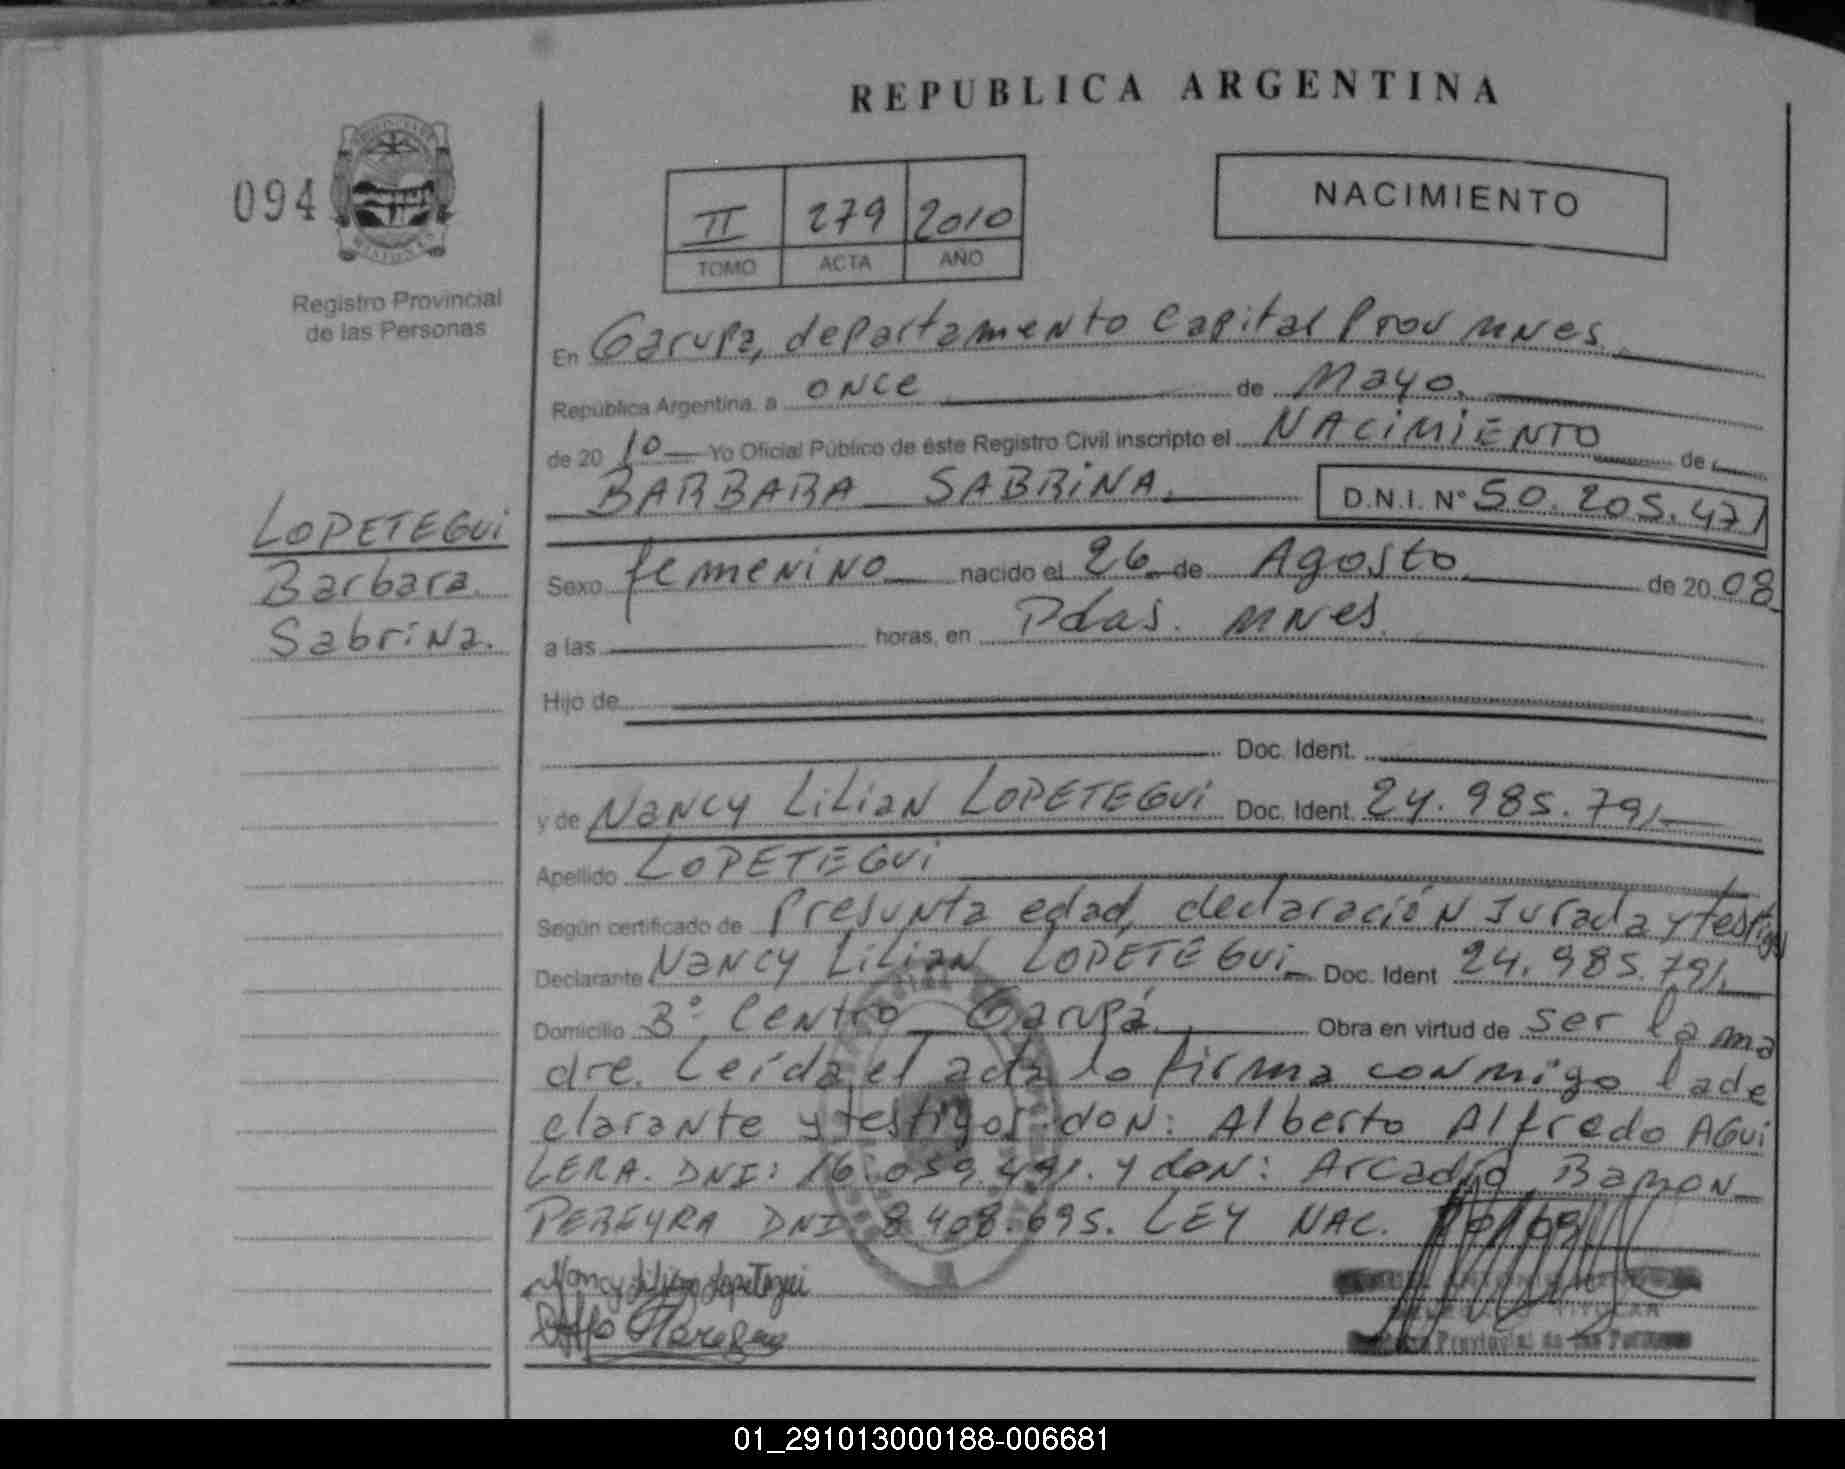 REPUBLICA ARGENTINA
094
Registro Provincial
de las Personas
II 279 2010
TOMO ACTA AÑO
NACIMIENTO
En Garupa, departamento Capital Prov MNES
República Argentina, a once de Mayo.
de 20 10 Yo Oficial Público de éste Registro Civil inscripto el NACIMIENTO de
BARBARA SABRINA. D.N.I. N° 50.205.471
LOPETEGUI
Barbara
Sabrina.
Sexo femenino nacido el 26 de Agosto de 20 08
a las horas, en Pdas. MNES.
Hijo de
Doc. Ident.
y de Nancy Lilian LOPETEGUI Doc. Ident. 24.985.791
Apellido LOPETEGUI
Según certificado de Presunta edad, declaración Jurada y testigos
Declarante Nancy Lilian LOPETEGUI Doc. Ident 24.985.791
Domicilio B° Centro Garupá. Obra en virtud de ser la ma
dre. Leída el acta lo firma conmigo la de
clarante y testigos don: Alberto Alfredo AGUI
LERA. DNI: 16.059.491. y don: Arcadio Ramon
PEREYRA DNI 8.408.695. LEY NAC.
Nancy Lilian Lopetegui
Provincial de las Personas
01_291013000188-006681